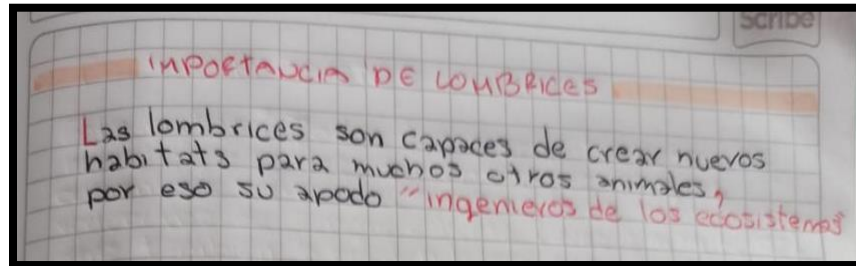 Scribe
IMPORTANCIA DE LOMBRICES
Las lombrices son capaces de crear nuevos
habitats para muchos otros animales,
por eso su apodo "ingenieros de los ecosistemas